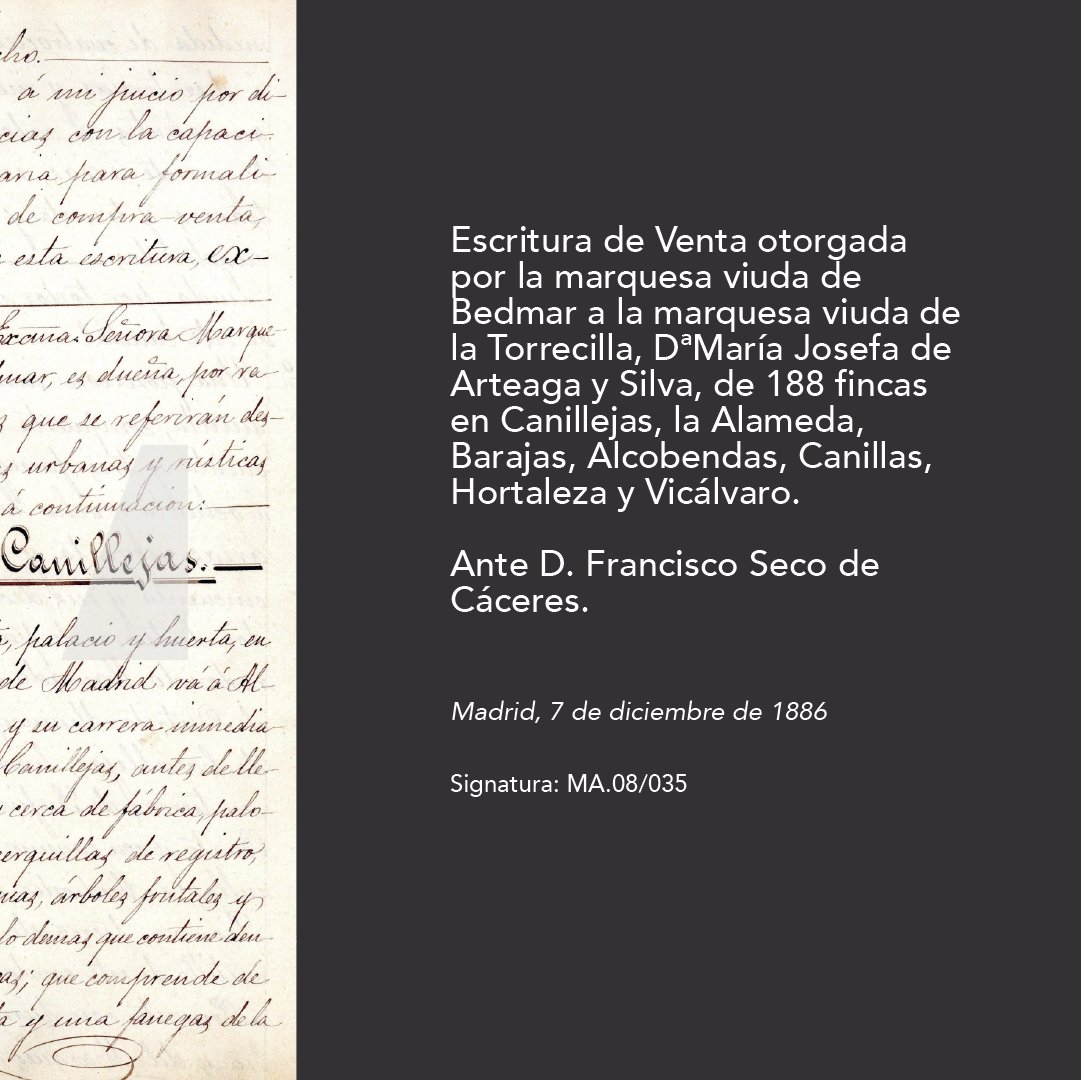 cho.
á mi juicio por di-
cias con la capaci-
aria para formali-
de compra-venta,
esta escritura, ex-
Excma. Señora Marque-
mar, es dueña, por ra-
que se referirán des-
s urbanas y rústicas
á continuación:
Canillejas.
palacio y huerta, en
de Madrid vá á Al-
y su carrera inmedia-
Canillejas, antes de lle-
cerca de fábrica, palo-
erquillas de registro,
mas, árboles frutales y
lo demas que contiene den-
as; que comprende de
ta y una fanegas de la
Escritura de Venta otorgada
por la marquesa viuda de
Bedmar a la marquesa viuda de
la Torrecilla, DªMaría Josefa de
Arteaga y Silva, de 188 fincas
en Canillejas, la Alameda,
Barajas, Alcobendas, Canillas,
Hortaleza y Vicálvaro.
Ante D. Francisco Seco de
Cáceres.
Madrid, 7 de diciembre de 1886
Signatura: MA.08/035